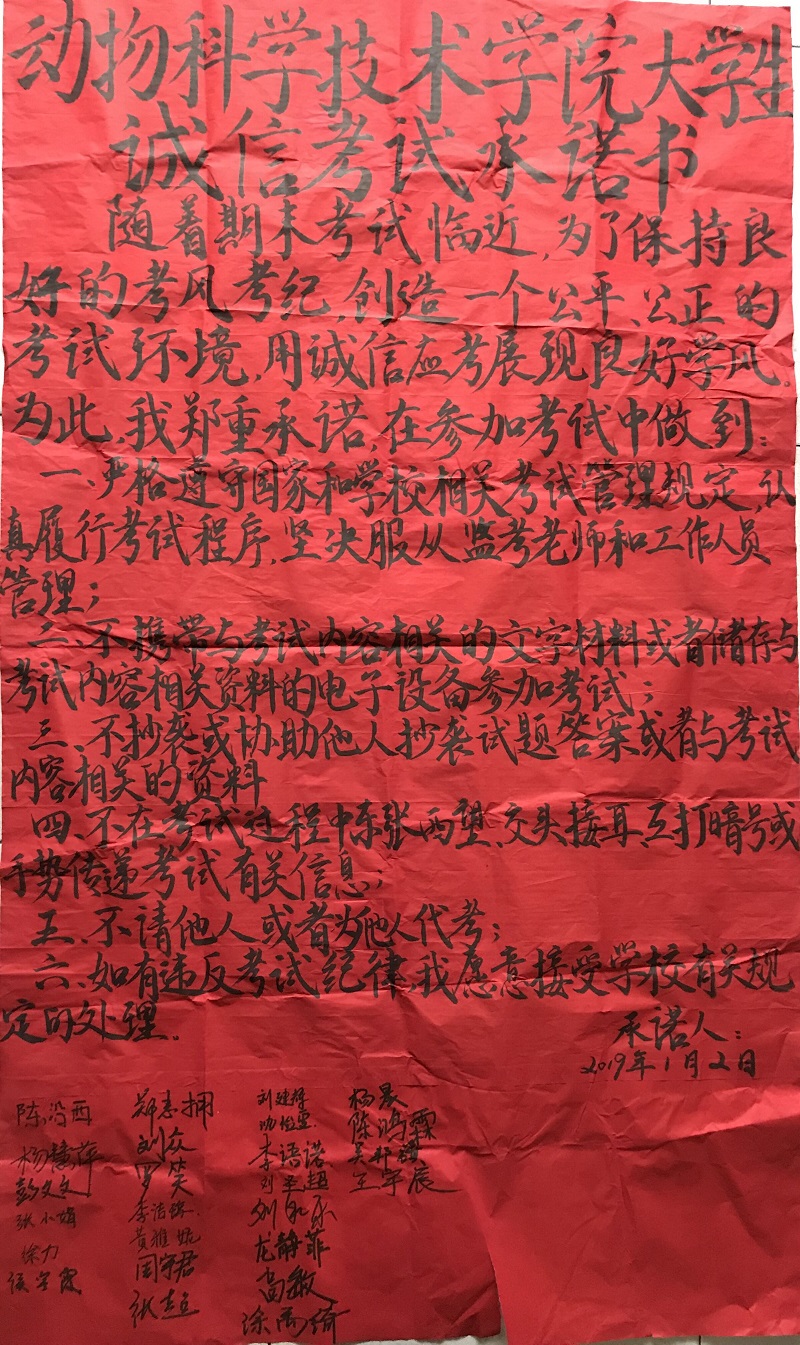 动物科学技术学院大学生
诚信考试承诺书
随着期末考试临近,为了保持良
好的考风考纪,创造一个公平、公正的
考试环境,用诚信应考展现良好学风。
为此,我郑重承诺,在参加考试中做到:
一、严格遵守国家和学校相关考试管理规定,认
真履行考试程序,坚决服从监考老师和工作人员
管理;
二、不携带与考试内容相关的文字材料或者储存与
考试内容相关资料的电子设备参加考试;
三、不抄袭或协助他人抄袭试题答案或者与考试
内容相关的资料
四、不在考试过程中东张西望、交头接耳、互打暗号或
手势传递考试有关信息;
五、不请他人或者为他人代考;
六、如有违反考试纪律,我愿意接受学校有关规
定的处理。
承诺人:
2019年1月2日
杨慧萍
彭文文
张小娟
徐力
郑惠拥
刘众
罗笑
黄雅妮
周宇君
张超
李语诺
刘圣超
龙静菲
高敏
涂禹绮
杨晨
陈鸣霖
王宇辰